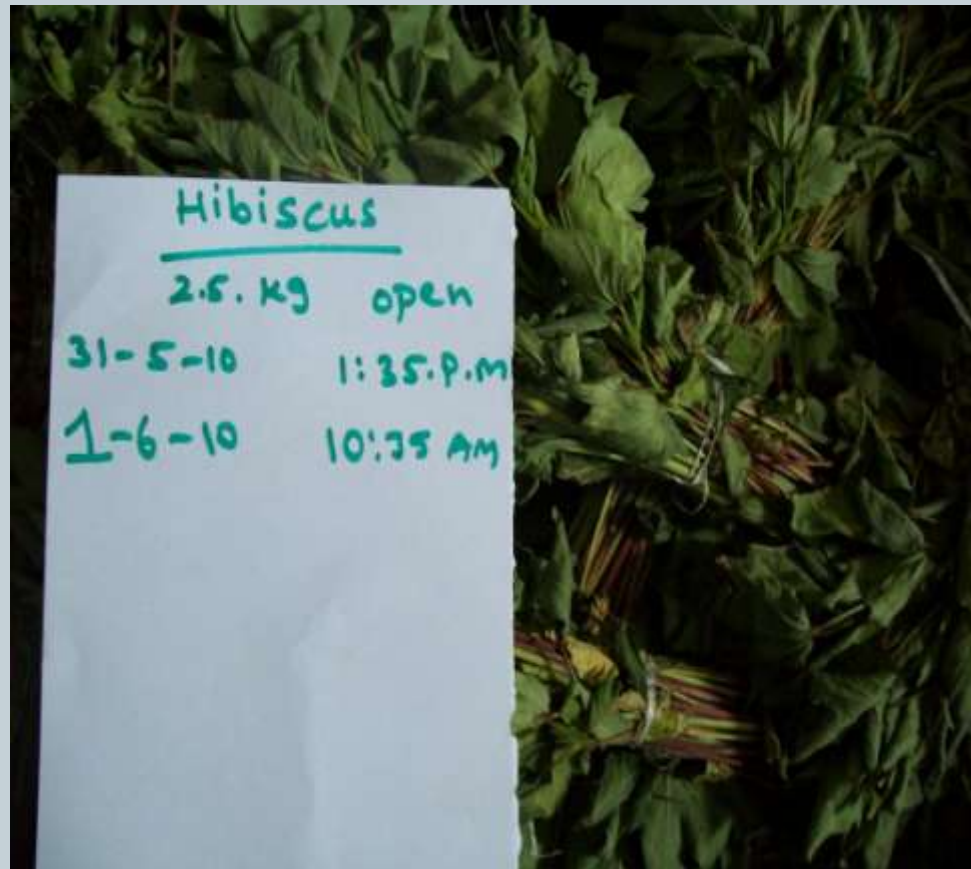 Hibiscus
2.5. Kg open
31-5-10 1:35.P.M
1-6-10 10:35 AM